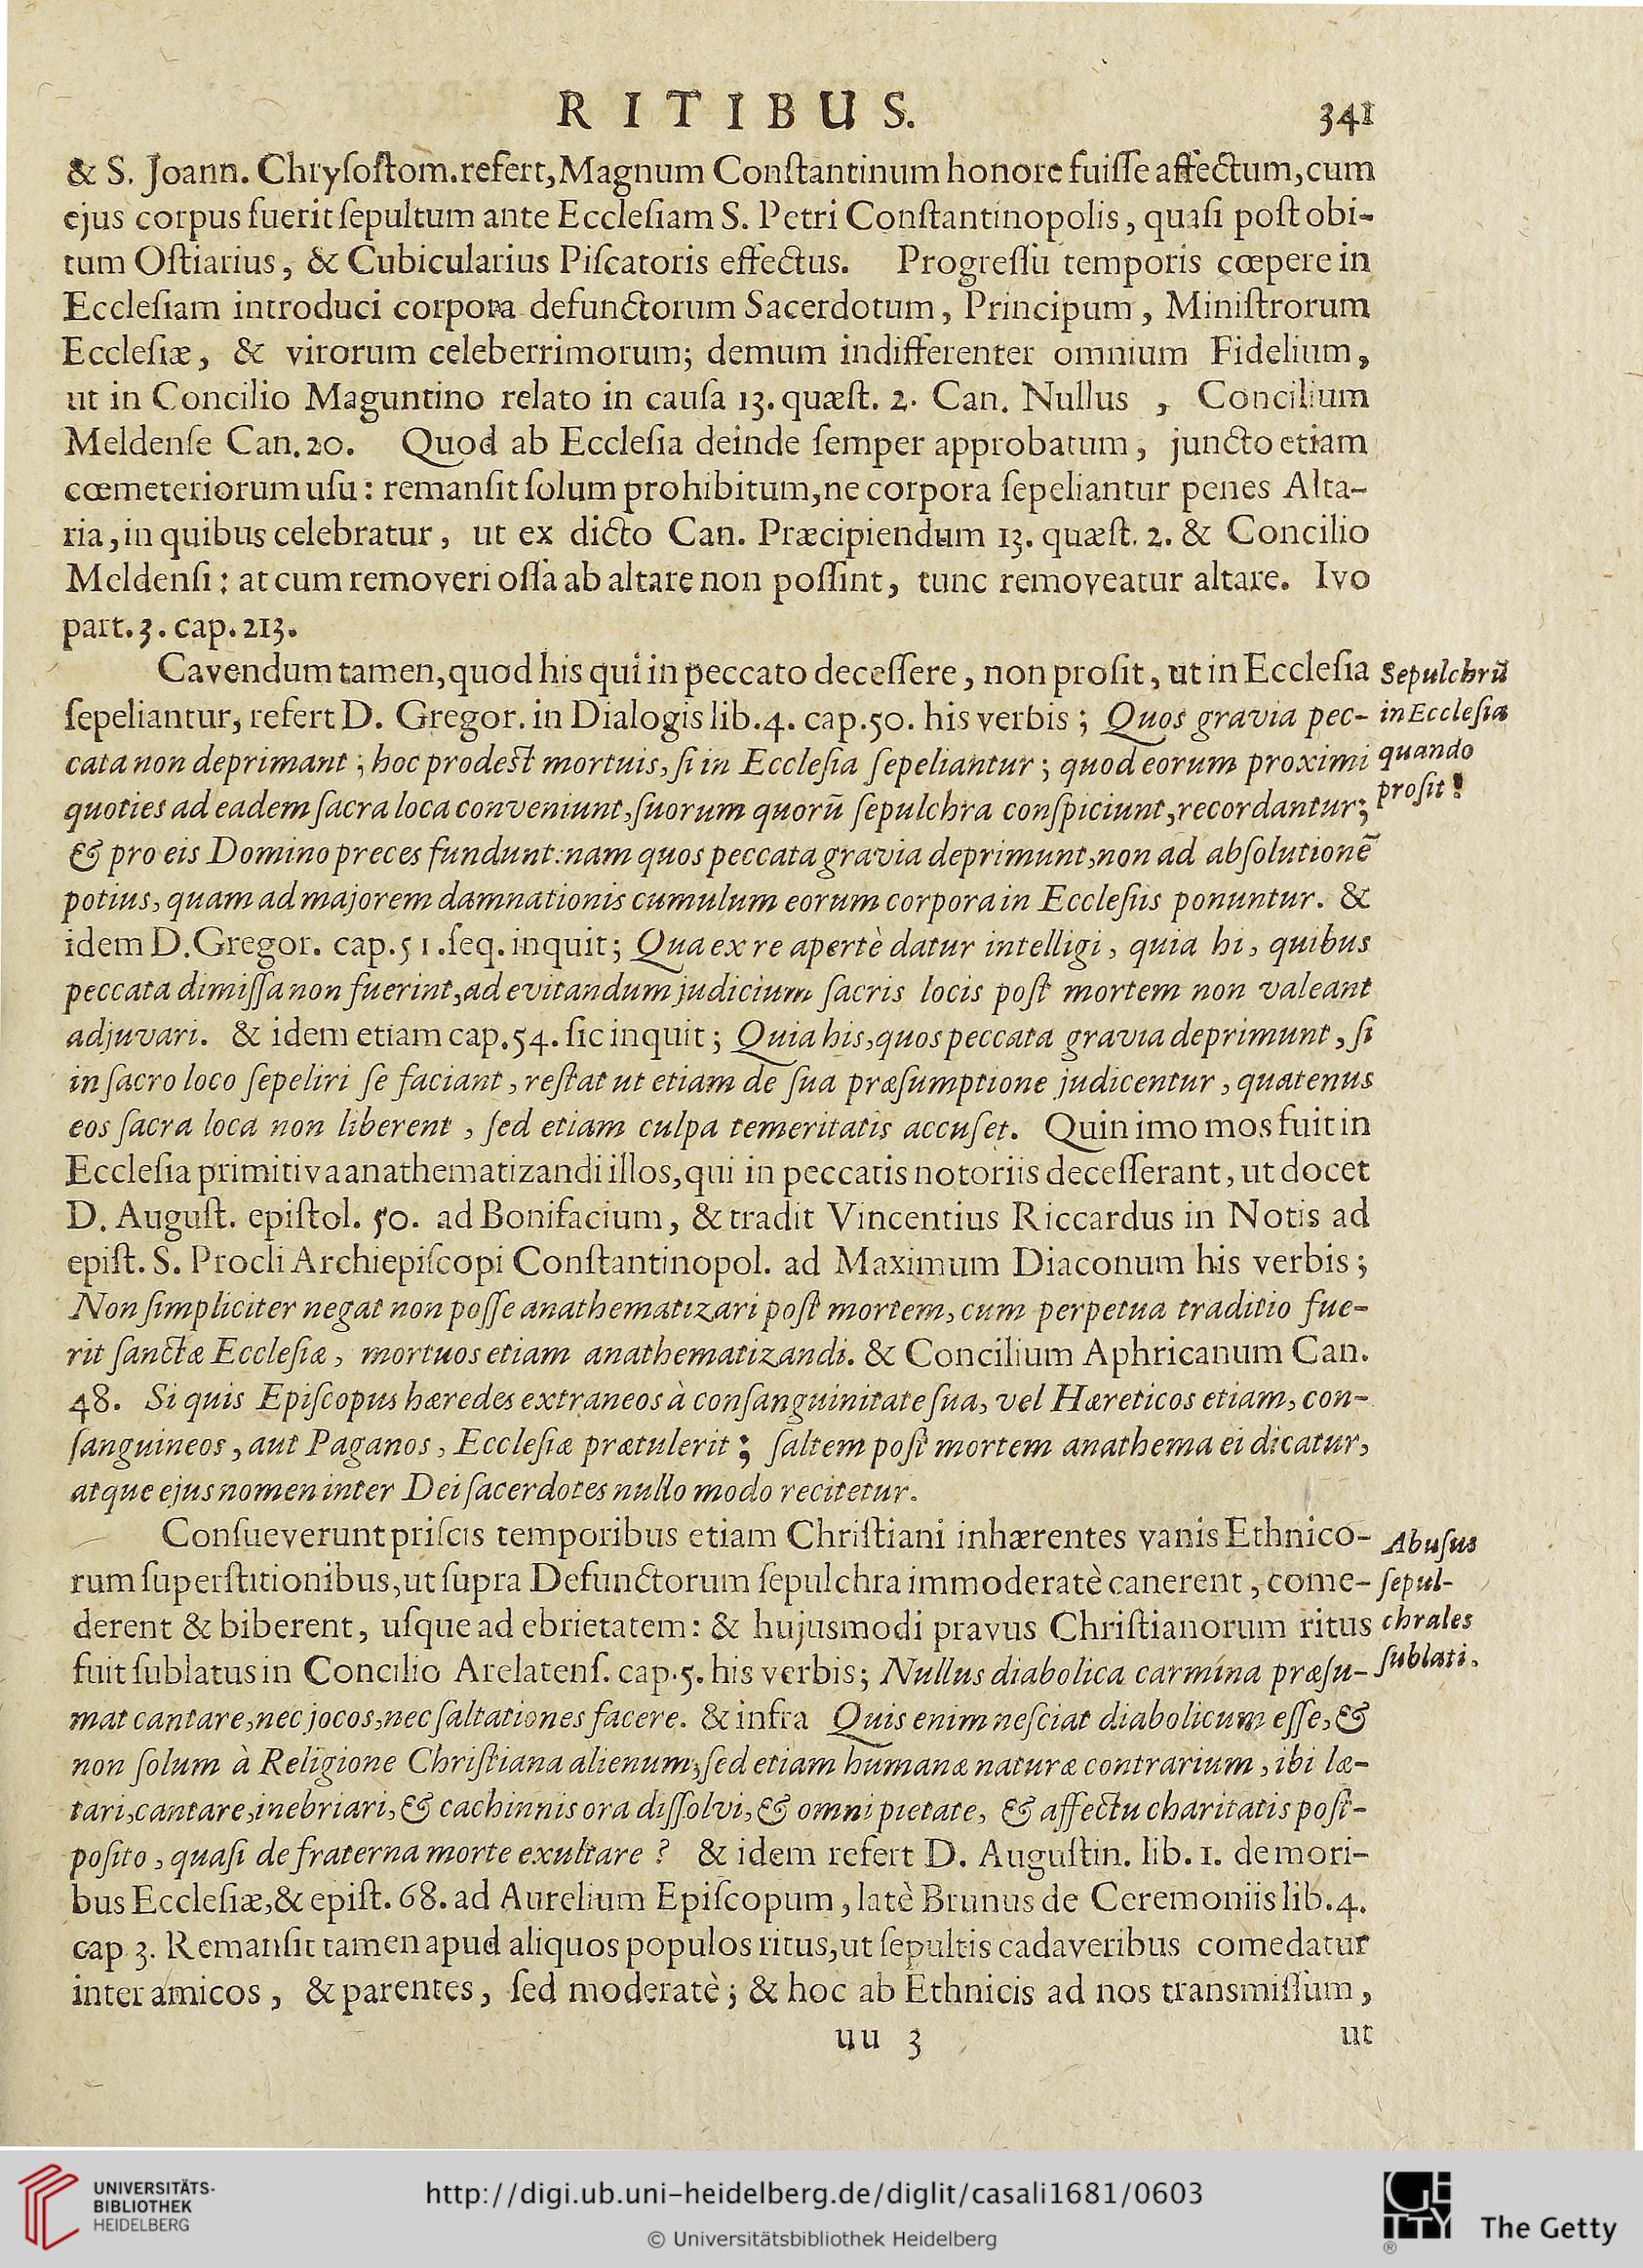 RITIBUS. 341
& S. Joann. Chryſoſtom. refert, Magnum Conſtantinum honore fuiſſe affectum, cum
ejus corpus fuerit ſepultum ante Eccleſiam S. Petri Conſtantinopolis, quaſi poſt obi-
tum Oſtiarius, & Cubicularius Piſcatoris effectus. Progreſſu temporis cœpere in
Eccleſiam introduci corpora defunctorum Sacerdotum, Principum, Miniſtrorum
Eccleſiæ, & virorum celeberrimorum; demum indifferenter omnium Fidelium,
ut in Concilio Maguntino relato in cauſa 13. quæſt. 2. Can. Nullus, Concilium
Meldenſe Can. 20. Quod ab Eccleſia deinde ſemper approbatum, juncto etiam
cœmeteriorum uſu: remanſit ſolum prohibitum, ne corpora ſepeliantur penes Alta-
ria, in quibus celebratur, ut ex dicto Can. Præcipiendum 13. quæſt. 2. & Concilio
Meldenſi: at cum removeri oſſa ab altare non poſſint, tunc removeatur altare. Ivo
part. 3. cap. 213.
Cavendum tamen, quod his qui in peccato deceſſere, non proſit, ut in Eccleſia
ſepeliantur, refert D. Gregor. in Dialogis lib. 4. cap. 50. his verbis; Quos gravia pec-
cata non deprimant; hoc prodeſt mortuis, ſi in Eccleſia ſepeliantur; quod eorum proximi
quoties ad eadem ſacra loca conveniunt, ſuorum quorū ſepulchra conſpiciunt, recordantur;
& pro eis Domino preces fundunt: nam quos peccata gravia deprimunt, non ad abſolutionē
potius, quam ad majorem damnationis cumulum eorum corpora in Eccleſiis ponuntur. &
idem D. Gregor. cap. 51. ſeq. inquit; Qua ex re apertè datur intelligi, quia hi, quibus
peccata dimiſſa non fuerint, ad evitandum judicium ſacris locis poſt mortem non valeant
adjuvari. & idem etiam cap. 54. ſic inquit; Quia his, quos peccata gravia deprimunt, ſi
in ſacro loco ſepeliri ſe faciant, reſtat ut etiam de ſua præſumptione judicentur, quatenus
eos ſacra loca non liberent, ſed etiam culpa temeritatis accuſet. Quin imo mos fuit in
Eccleſia primitiva anathematizandi illos, qui in peccatis notoriis deceſſerant, ut docet
D. Auguſt. epiſtol. 50. ad Bonifacium, & tradit Vincentius Riccardus in Notis ad
epiſt. S. Procli Archiepiſcopi Conſtantinopol. ad Maximum Diaconum his verbis;
Non ſimpliciter negat non poſſe anathematizari poſt mortem, cum perpetua traditio fue-
rit ſanctæ Eccleſiæ, mortuos etiam anathematizandi. & Concilium Aphricanum Can.
48. Si quis Epiſcopus hæredes extraneos à conſanguinitate ſua, vel Hæreticos etiam, con-
ſanguineos, aut Paganos, Eccleſiæ prætulerit; ſaltem poſt mortem anathema ei dicatur,
atque ejus nomen inter Dei ſacerdotes nullo modo recitetur.
Conſueverunt priſcis temporibus etiam Chriſtiani inhærentes vanis Ethnico-
rum ſuperſtitionibus, ut ſupra Defunctorum ſepulchra immoderatè canerent, come-
derent & biberent, uſque ad ebrietatem: & hujusmodi pravus Chriſtianorum ritus
fuit ſublatus in Concilio Arelatenſ. cap. 5. his verbis; Nullus diabolica carmina præſu-
mat cantare, nec jocos, nec ſaltationes facere. & infra Quis enim neſciat diabolicum eſſe, &
non ſolum à Religione Chriſtiana alienum; ſed etiam humanæ naturæ contrarium, ibi læ-
tari, cantare, inebriari, & cachinnis ora diſſolvi, & omni pietate, & affectu charitatis poſt-
poſito, quaſi de fraterna morte exultare? & idem refert D. Auguſtin. lib. 1. de mori-
bus Eccleſiæ, & epiſt. 68. ad Aurelium Epiſcopum, latè Brunus de Ceremoniis lib. 4.
cap 3. Remanſit tamen apud aliquos populos ritus, ut ſepultis cadaveribus comedatur
inter amicos, & parentes, ſed moderatè; & hoc ab Ethnicis ad nos transmiſſum,
uu 3 ut
Sepulchrū
in Eccleſia
quando
proſit!
Abuſus
ſepul-
chrales
ſublati.
UNIVERSITÄTS-
BIBLIOTHEK
HEIDELBERG
http://digi.ub.uni-heidelberg.de/diglit/casali1681/0603
© Universitätsbibliothek Heidelberg
The Getty